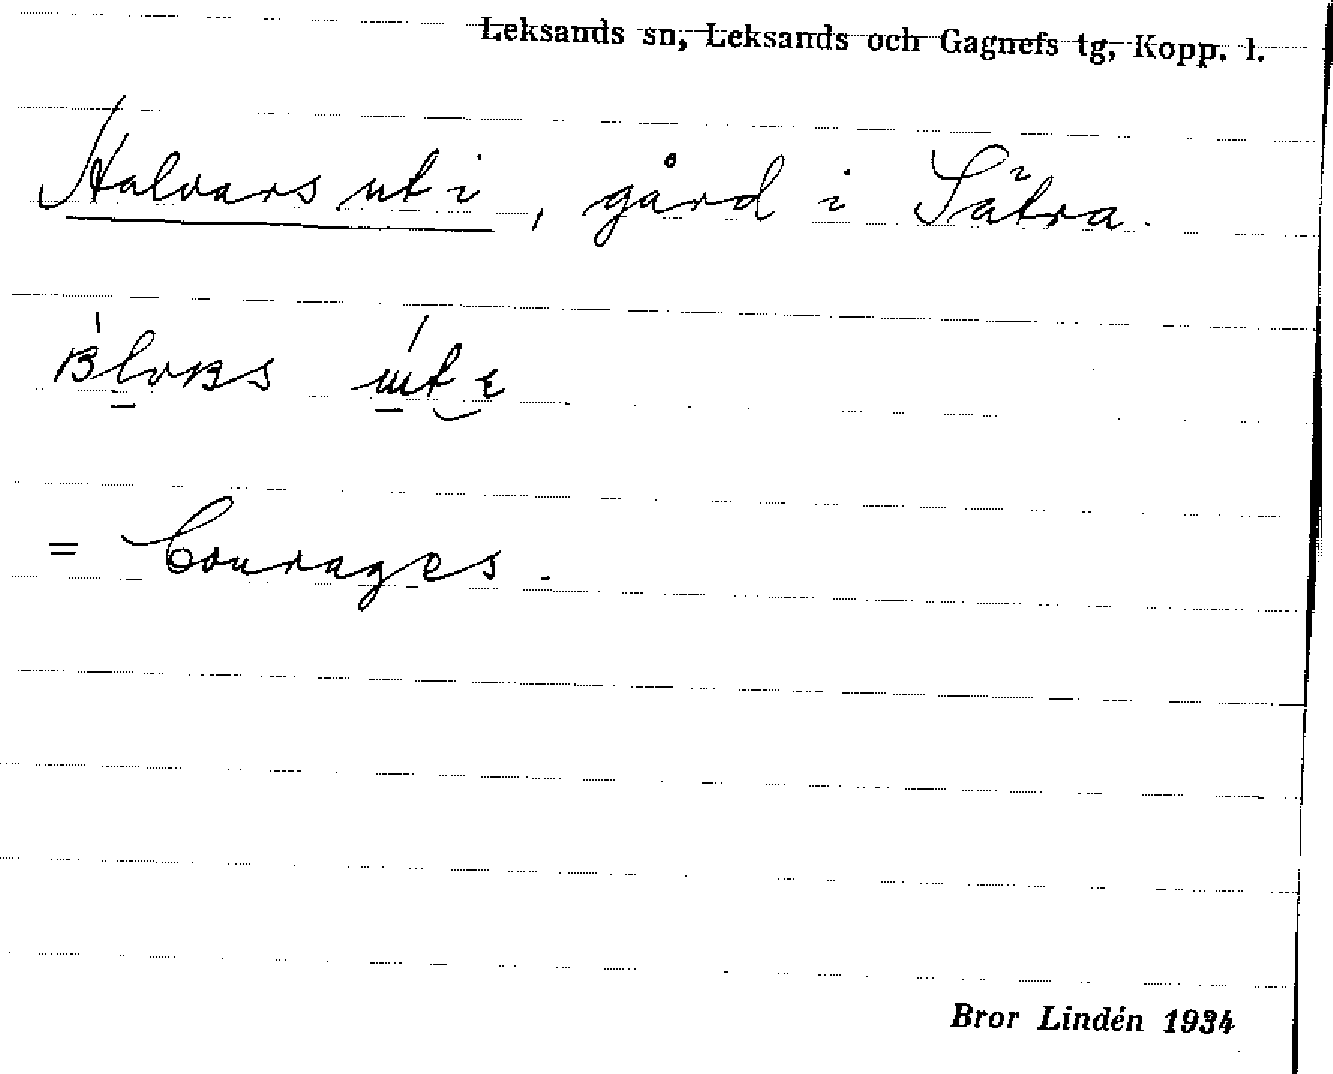 Leksands sn, Leksands och Gagnefs tg, Kopp. l.
Halvars ut i, gård i Sätra.
= Courages.
Bror Lindén 1934